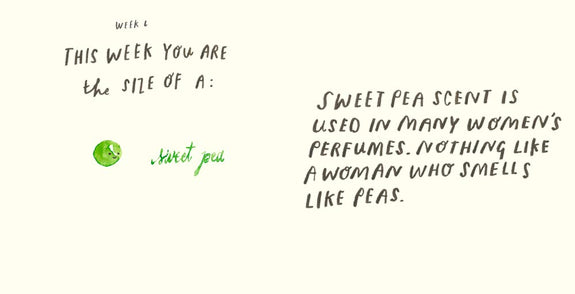 WEEK 6
THIS WEEK YOU ARE
the SIZE OF A:
sweet pea
SWEET PEA SCENT IS
USED IN MANY WOMEN'S
PERFUMES. NOTHING LIKE
A WOMAN WHO SMELLS
LIKE PEAS.